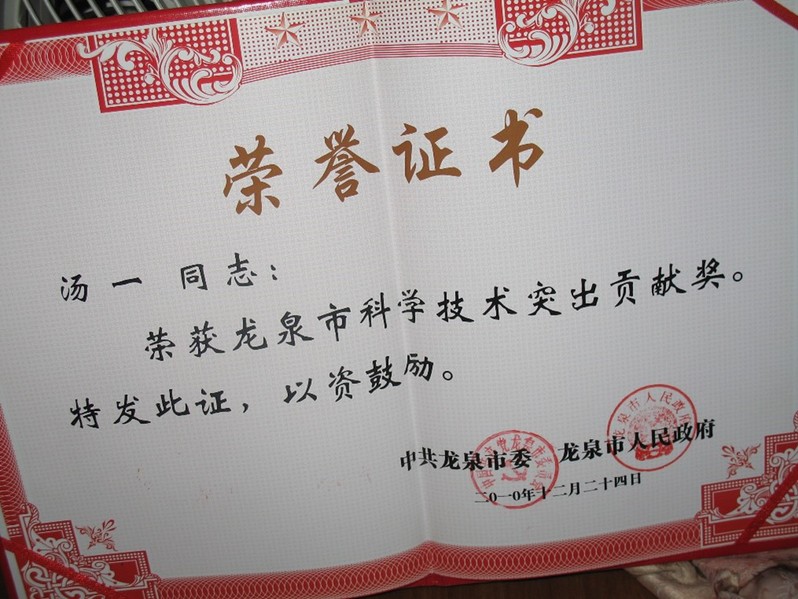 荣誉证书
汤一 同志：
荣获龙泉市科学技术突出贡献奖。
特发此证，以资鼓励。
中共龙泉市委 龙泉市人民政府
二0一0年十二月二十四日
龙泉市人民政府